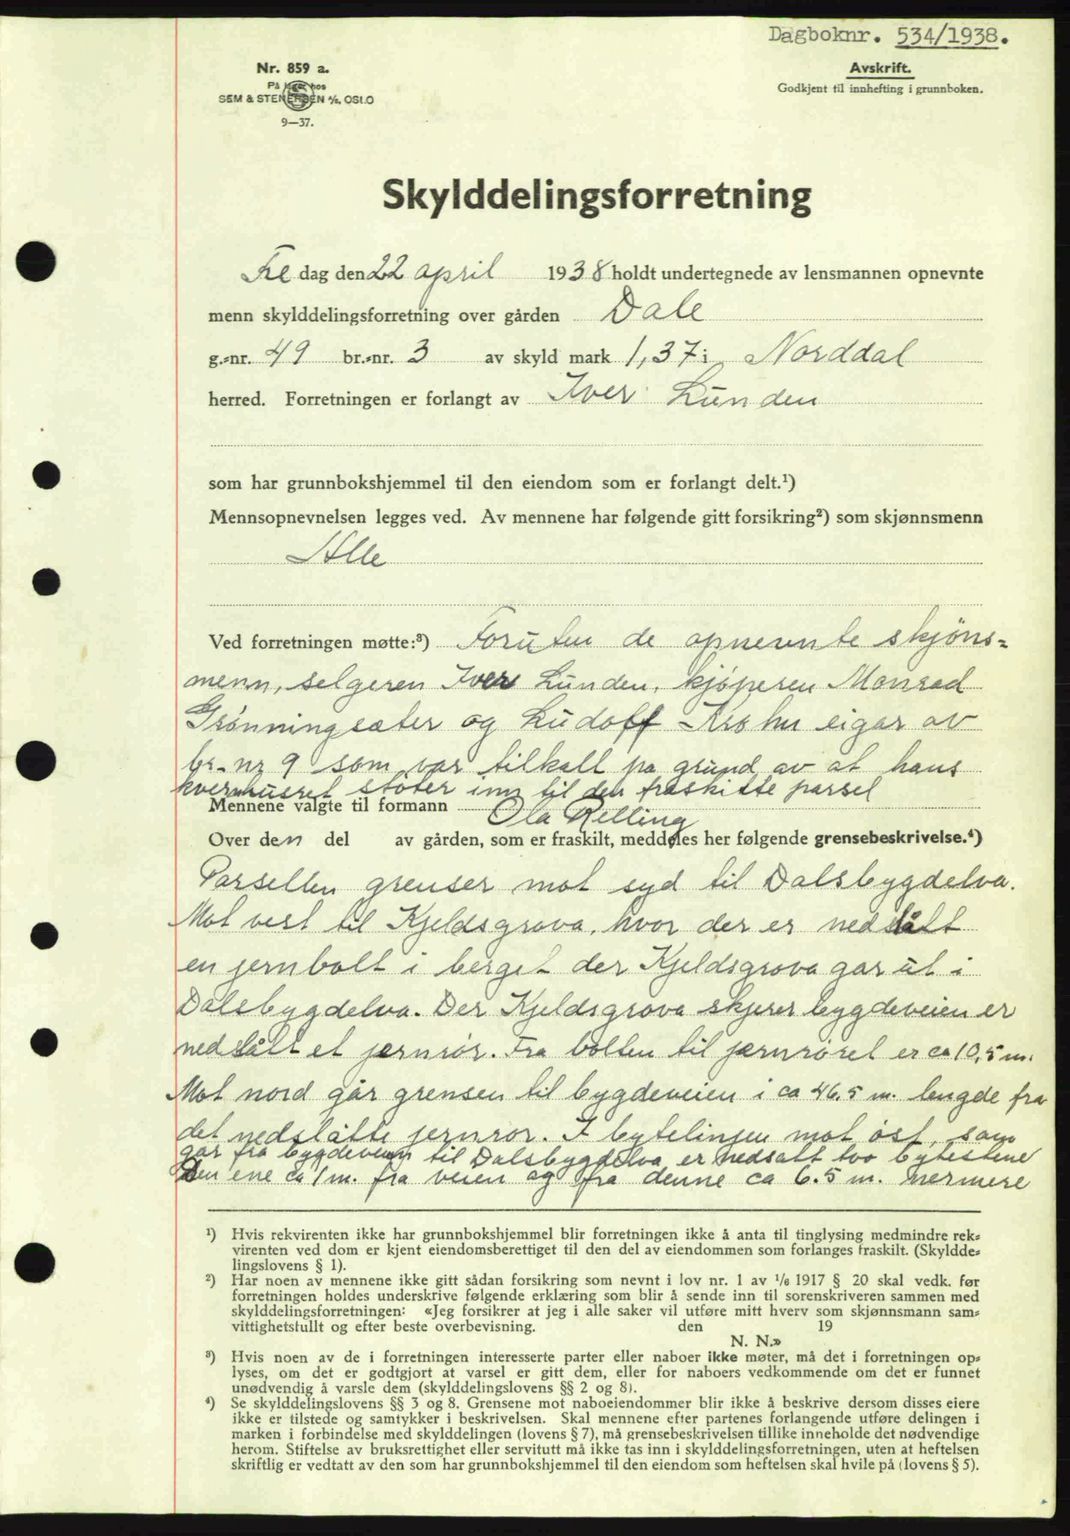 Dagboknr. 534/1938.
Nr. 859 a.
På lager hos
SEM & STENERSEN A/S, OSLO
9—37.
Avskrift.
Godkjent til innhefting i grunnboken.
Skylddelingsforretning
Fre dag den 22 april 1938 holdt undertegnede av lensmannen opnevnte
menn skylddelingsforretning over gården Dale
g.=nr. 49 br.=nr. 3 av skyld mark 1,37 i Norddal
herred. Forretningen er forlangt av Iver Lunden
som har grunnbokshjemmel til den eiendom som er forlangt delt.¹)
Mennsopnevnelsen legges ved. Av mennene har følgende gitt forsikring²) som skjønnsmenn
Alle
Ved forretningen møtte:³) Foruten de opnevnte skjöns=
menn, selgeren Iver Lunden, kjöperen Monrad
Grönningsæter og Ludolf Krohn eigar av
br.nr 9 som var tilkalt på grund av at hans
kvernhusret støter inn til den fraskilte parsel
Mennene valgte til formann Ola Relling
Over den del av gården, som er fraskilt, meddeles her følgende grensebeskrivelse.⁴)
Parsellen grenser mot syd til Dalsbygdelva.
Mot vest til Kjeldsgrova, hvor der er nedslått
en jernbolt i berget der Kjeldsgrova går ut i
Dalsbygdelva. Der Kjeldsgrova skjerer bygdeveien er
nedslått et jernrör. Fra bolten til jernröret er ca 10,5 m.
Mot nord går grensen til bygdeveien i ca 46.5 m. lengde fra
det nedslåtte jernrör. I bytelinjen mot öst, som
går fra bygdeveien til Dalsbygdelva er nedsatt tvo bytesteine
Den ene ca 1 m. fra veien og fra denne ca 6.5 m. nermere
¹) Hvis rekvirenten ikke har grunnbokshjemmel blir forretningen ikke å anta til tinglysing medmindre rek=
virenten ved dom er kjent eiendomsberettiget til den del av eiendommen som forlanges fraskilt. (Skyldde=
lingslovens § 1).
²) Har noen av mennene ikke gitt sådan forsikring som nevnt i lov nr. 1 av 1/6 1917 § 20 skal vedk. før
forretningen holdes underskrive følgende erklæring som blir å sende inn til sorenskriveren sammen med
skylddelingsforretningen: «Jeg forsikrer at jeg i alle saker vil utføre mitt hverv som skjønnsmann sam=
vittighetsfullt og efter beste overbevisning. den 19
N. N.»
³) Hvis noen av de i forretningen interesserte parter eller naboer ikke møter, må det i forretningen op=
lyses, om det er godtgjort at varsel er gitt dem, eller for naboers vedkommende om det er funnet
unødvendig å varsle dem (skylddelingslovens §§ 2 og 8).
⁴) Se skylddelingslovens §§ 3 og 8. Grensene mot naboeiendommer blir ikke å beskrive dersom disses eiere
ikke er tilstede og samtykker i beskrivelsen. Skal mennene efter partenes forlangende utføre delingen i
marken i forbindelse med skylddelingen (lovens § 7), må grensebeskrivelsen tillike inneholde det nødvendige
herom. Stiftelse av bruksrettighet eller servitutt må ikke tas inn i skylddelingsforretningen, uten at heftelsen
skriftlig er vedtatt av den som har grunnbokshjemmel til den eiendom som heftelsen skal hvile på (lovens § 5).